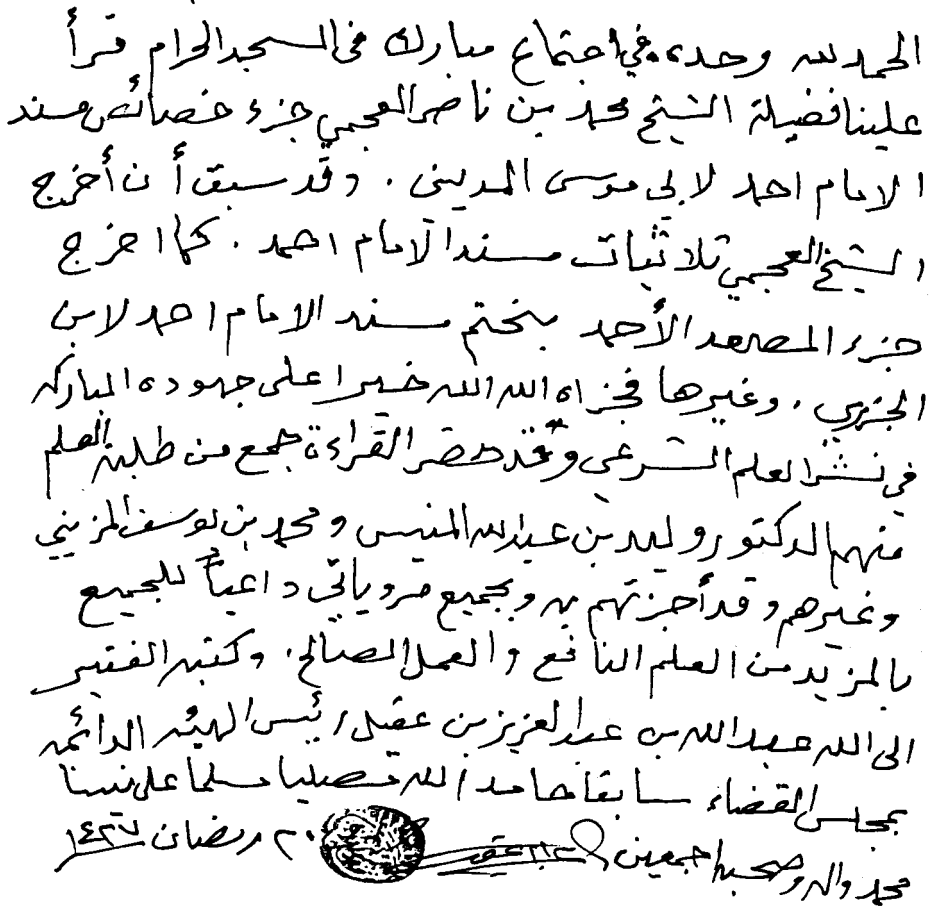 الحمد لله وحده، في اجتماع مبارك في المسجد الحرام قرأ
علينا فضيلة الشيخ محمد بن ناصر العجمي جزء خصائص مسند
الامام احمد لابي موسى المديني . وقد سبق أن أخرج
الشيخ العجمي ثلاثيات مسند الامام احمد . كما اخرج
جزء المصعد الأحمد بختم مسند الامام احمد لابن
الجزري . وغيرها فجزاه الله الله خيرا على جهوده المباركه
في نشر العلم الشرعي وقد حضر القراءة جمع من طلبة العلم
منهم الدكتور وليد بن عبدالله المنيس ومحمد بن يوسف المزيني
وغيرهم وقد أجزتهم به وبجميع مروياتي داعياً للجميع
بالمزيد من العلم النافع والعمل الصالح . وكتبه الفقير
الى الله عبد الله بن عبد العزيز بن عقيل رئيس الهيئه الدائمه
بمجلس القضاء سابقا حامدا لله مصليا مسلما على نبينا
محمد واله وصحبه اجمعين ٢٠ رمضان ١٤٢٧